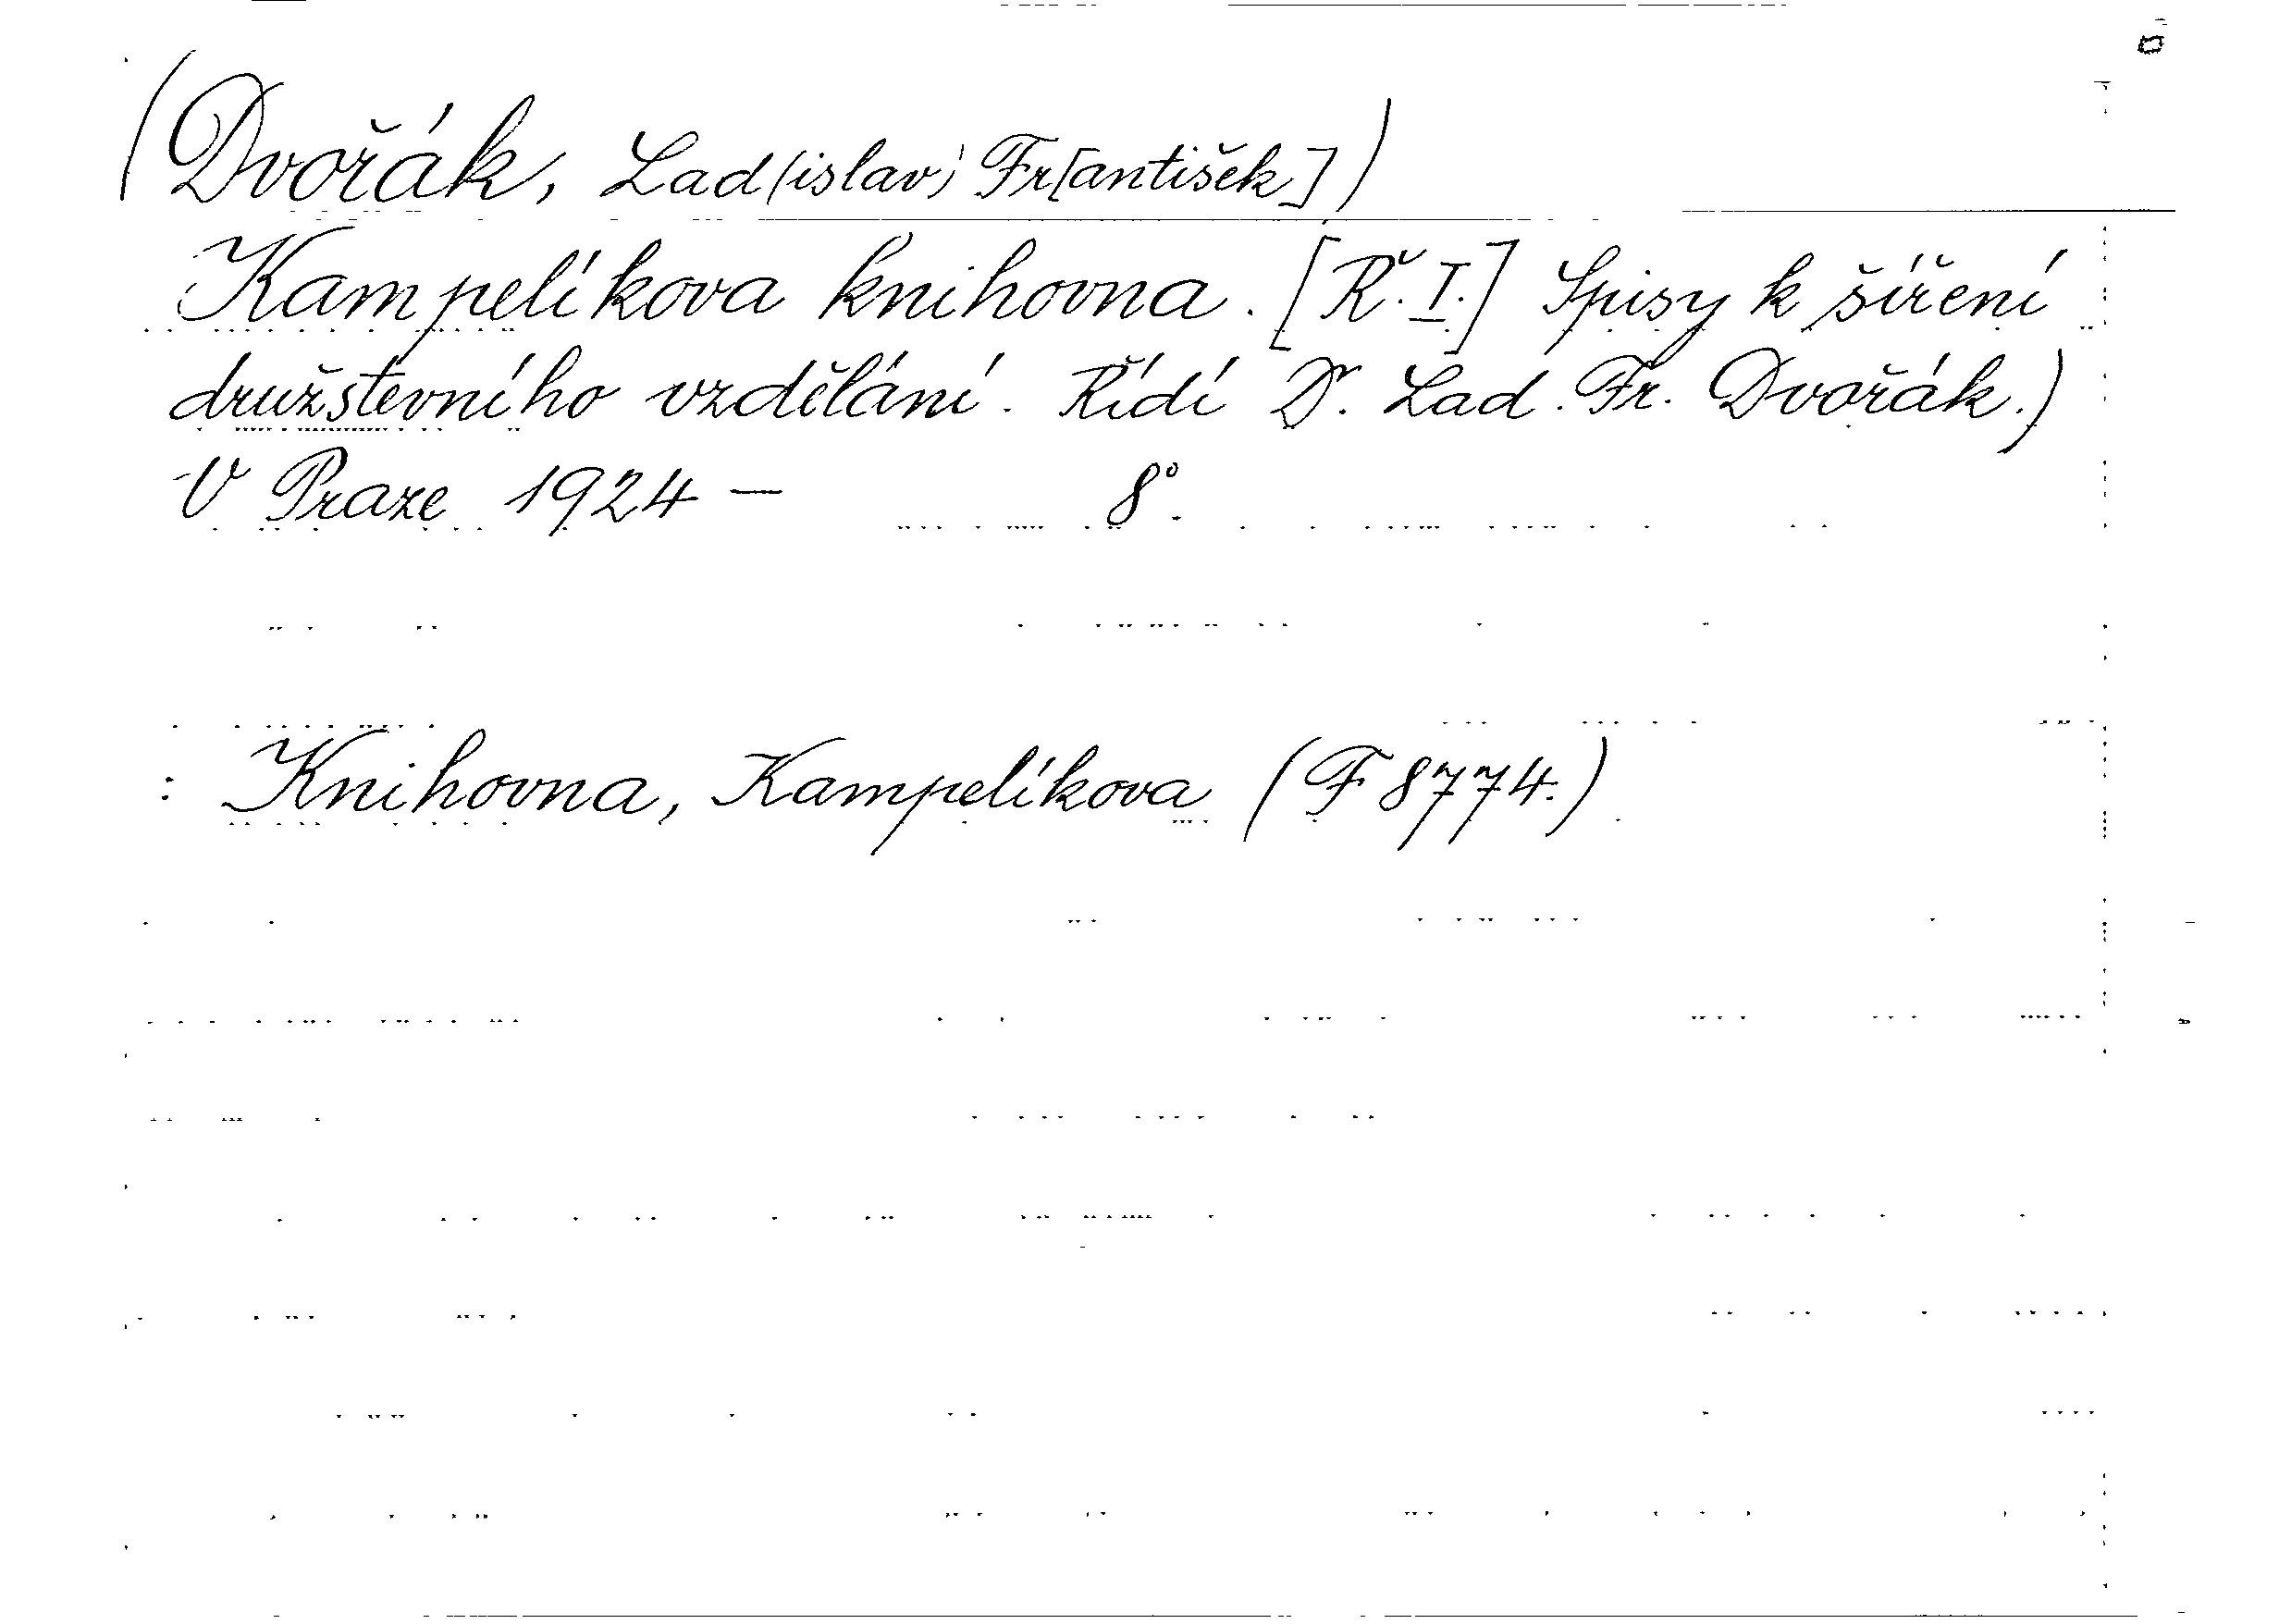 (Dvořák, Lad(islav) Fr[antišek])
Kampelíkova knihovna. [Ř. I.] Spisy k šíření
družstevního vzdělání. Řídí Dr. Lad. Fr. Dvořák.)
V Praze 1924 — 8°.
: Knihovna, Kampelíkova (F 8774.)